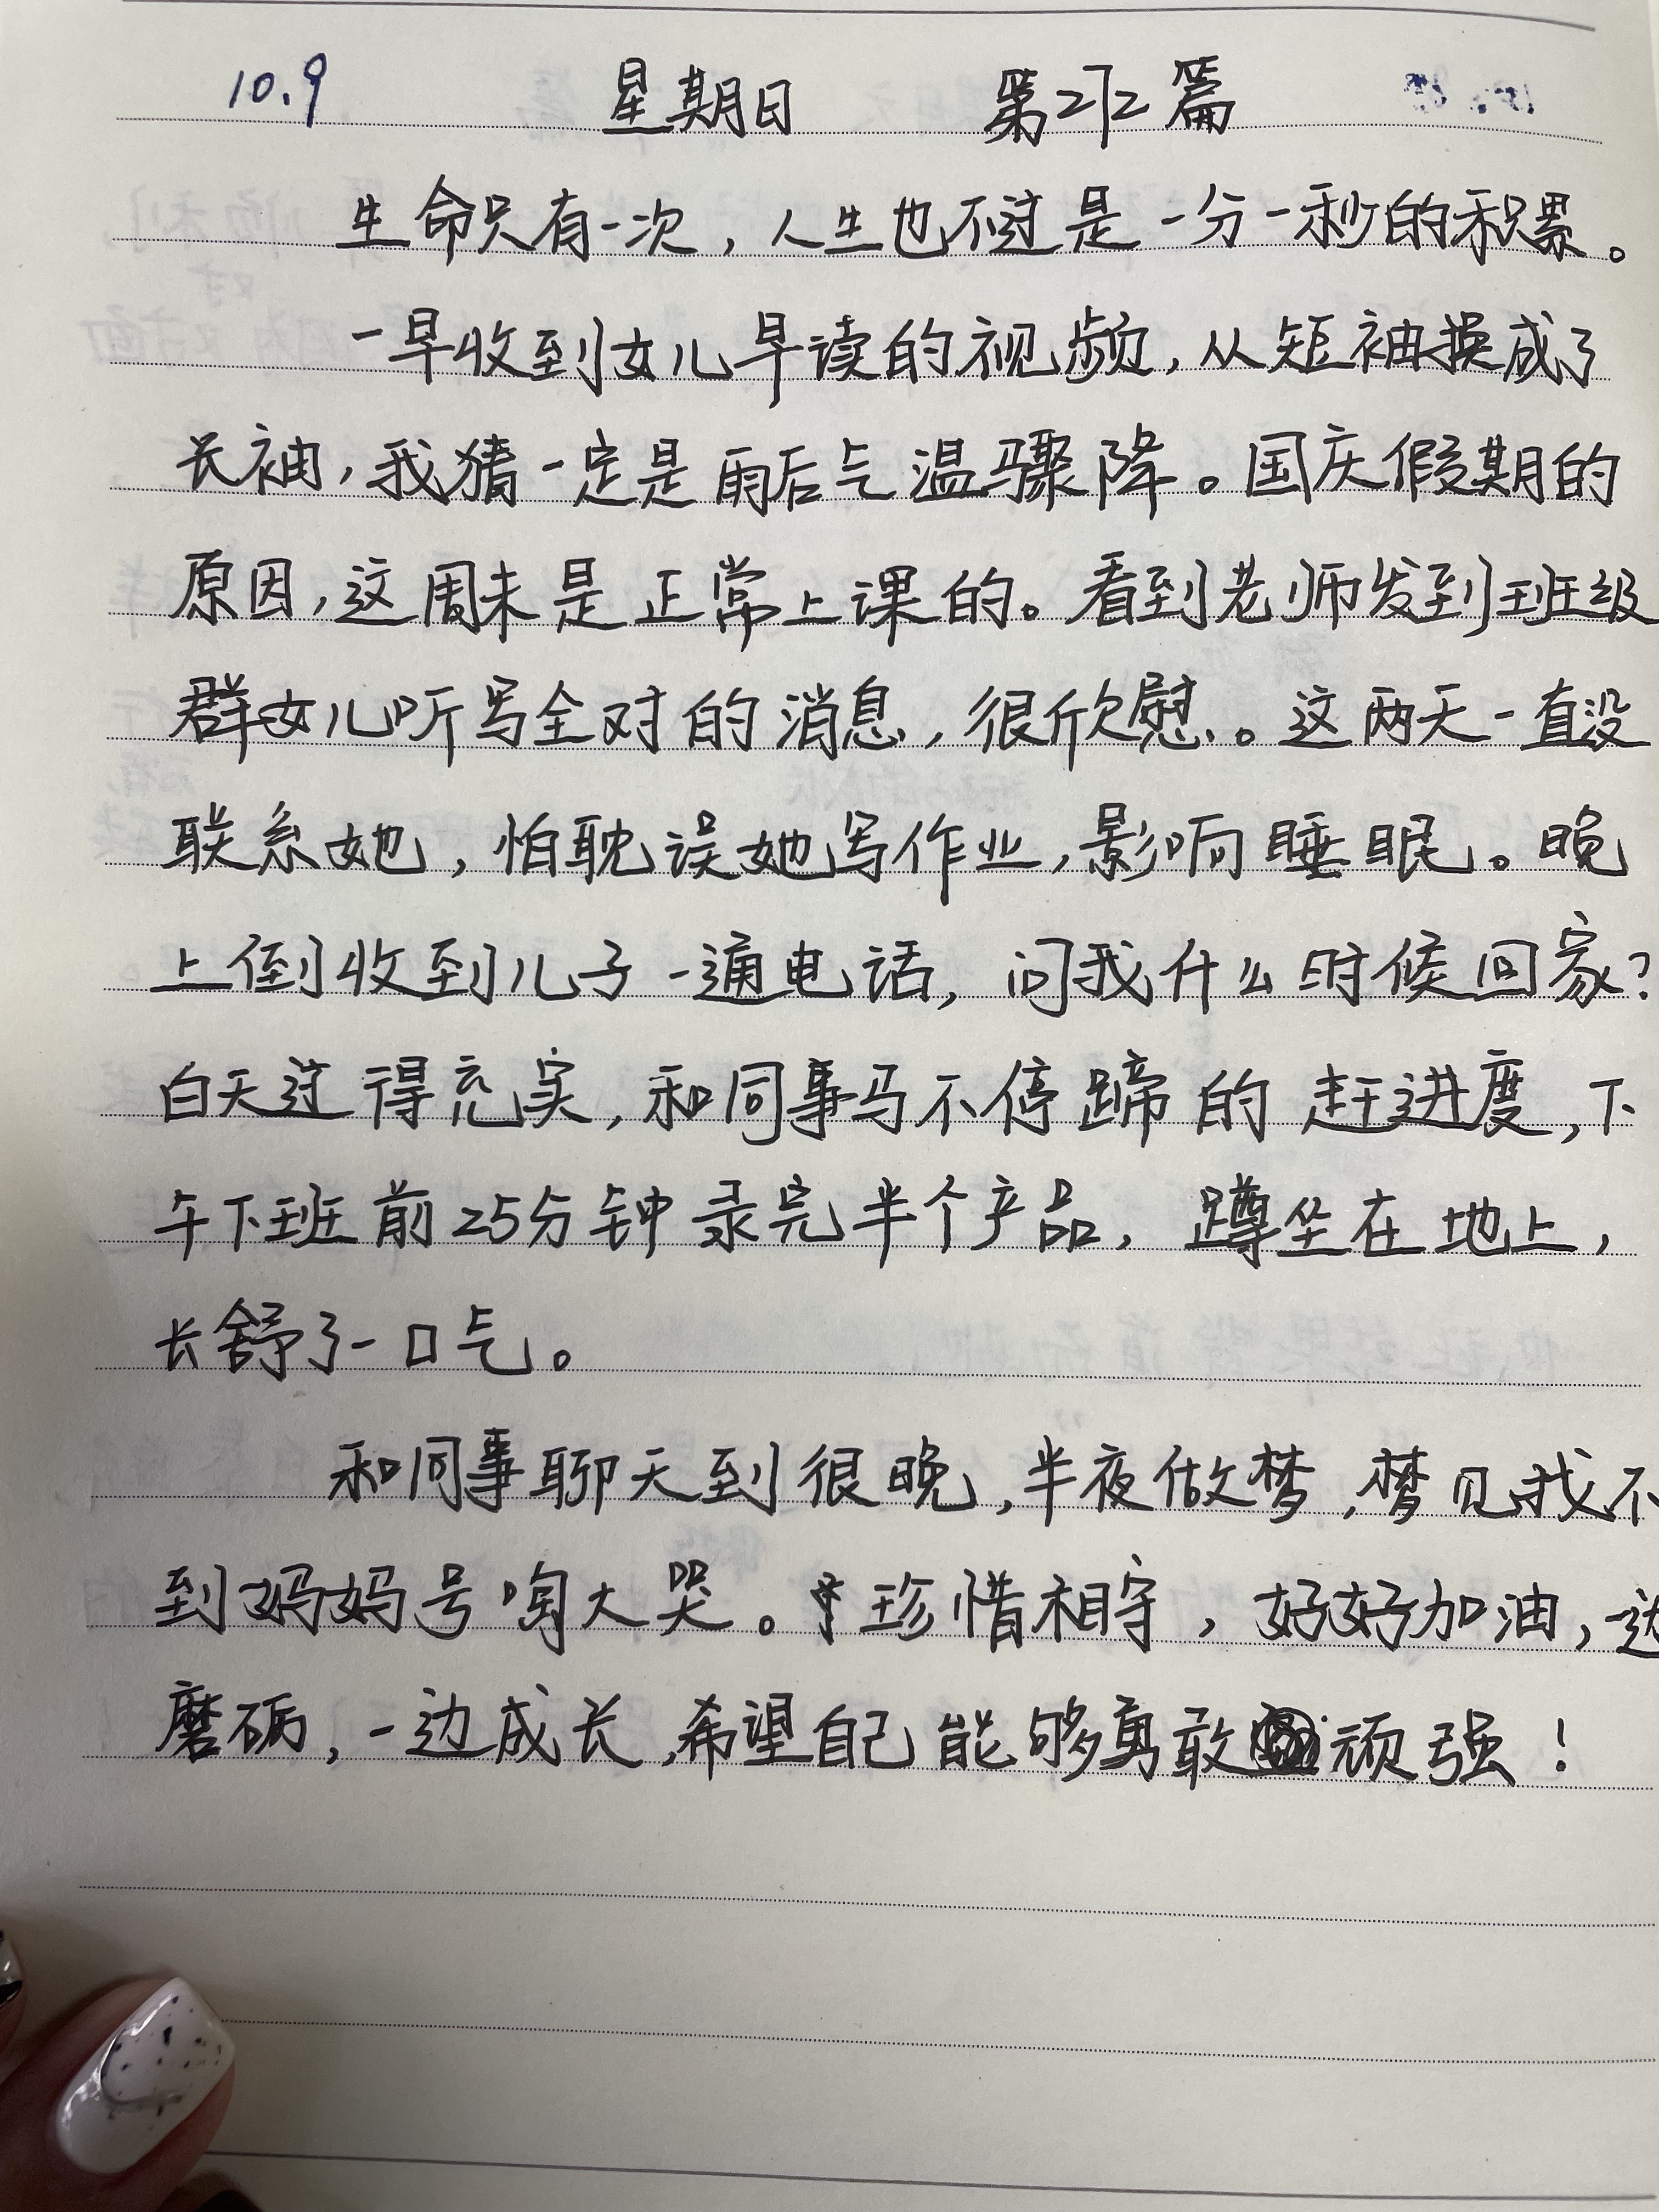 10.9 星期日 第272篇
生命只有一次，人生也不过是一分一秒的积累。
一早收到女儿早读的视频，从短袖换成了
长袖，我猜一定是雨后气温骤降。国庆假期的
原因，这周末是正常上课的。看到老师发到班级
群女儿听写全对的消息，很欣慰。这两天一直没
联系她，怕耽误她写作业，影响睡眠。晚
上倒收到儿子一通电话，问我什么时候回家？
白天过得充实，和同事马不停蹄的赶进度，下
午下班前25分钟录完半个产品，蹲坐在地上，
长舒了一口气。
和同事聊天到很晚，半夜做梦，梦见找不
到妈妈号啕大哭。珍惜相守，好好加油，边
磨砺，一边成长，希望自己能够勇敢顽强！